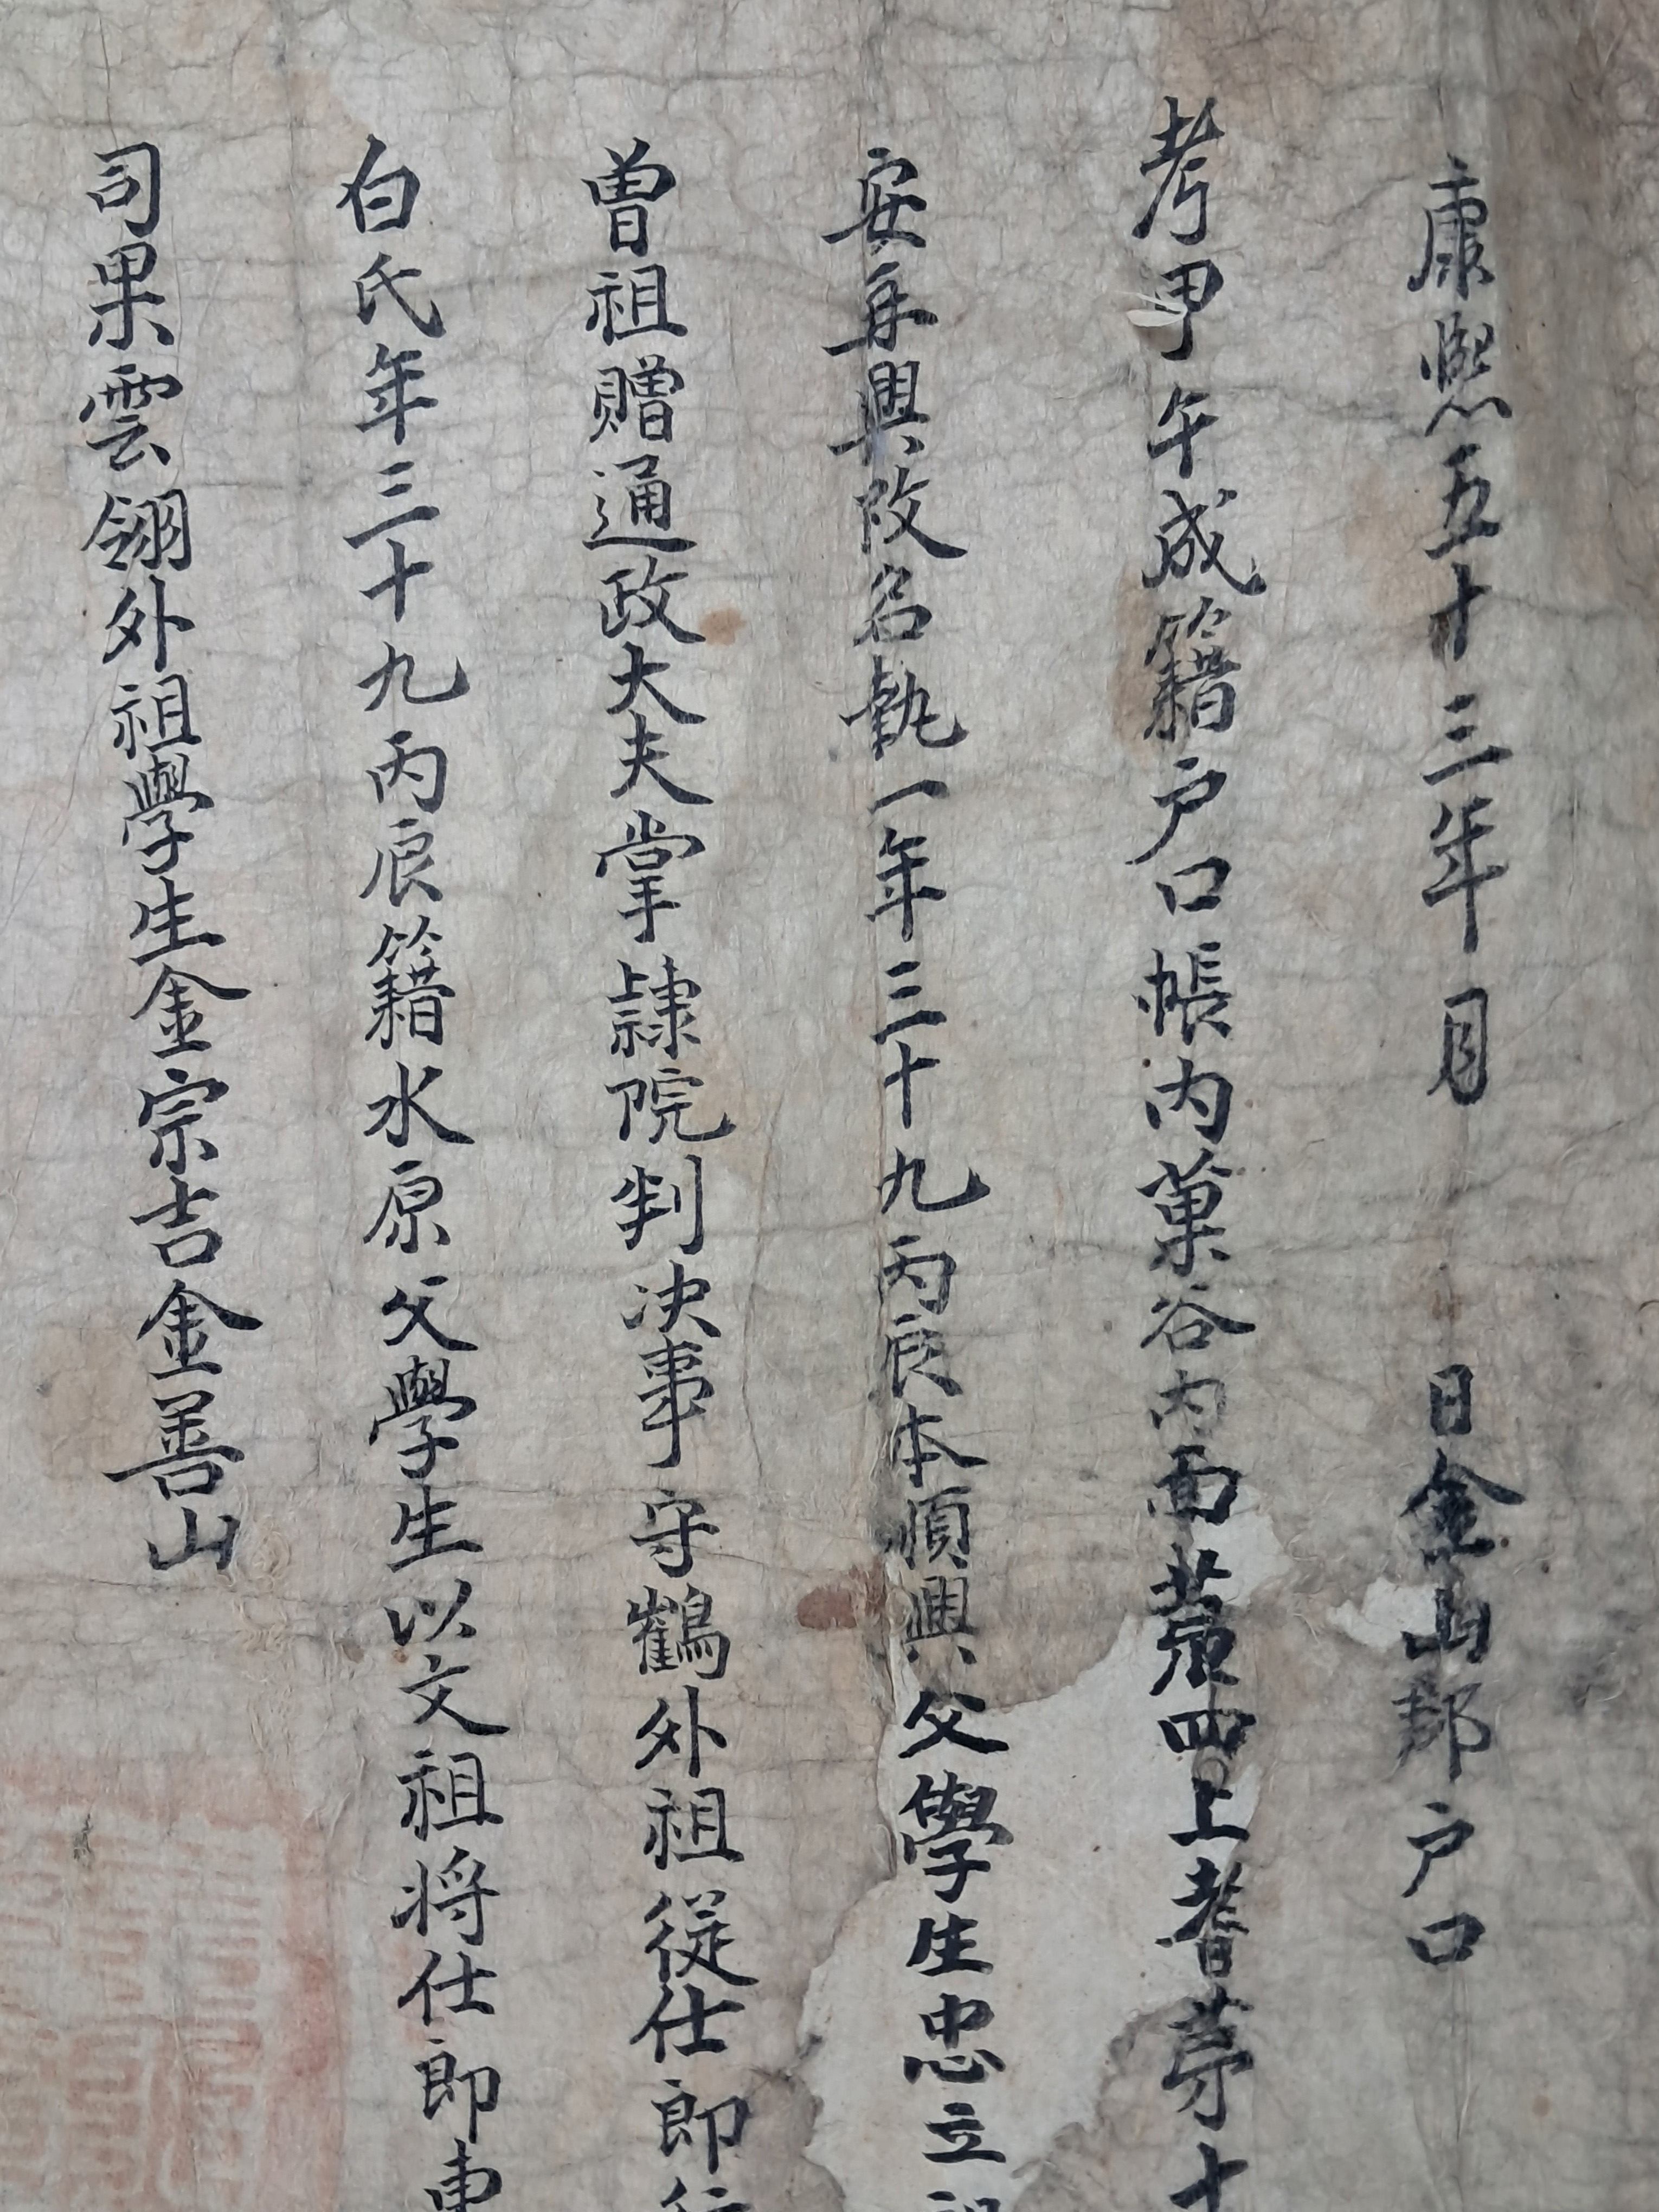 康熙五十三年月日金山郡戶口
考甲午成籍戶口帳內菓谷內面苐四上耆苐十
安再興改名執一年三十九丙辰本順興父學生忠立祖
曾祖贈通政大夫掌隷院判决事守鶴外祖從仕郎行
白氏年三十九丙辰籍水原父學生以文祖将仕郎東
司果雲翎外祖學生金宗吉金善山